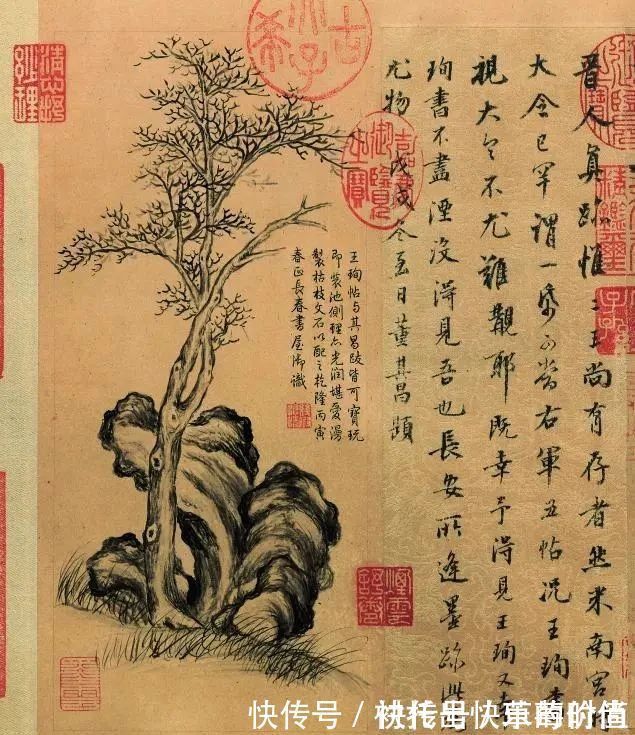 晉人真跡惟二王尚有存者然米南宮時
大令已罕謂一帋可當右軍五帖況王珣書
視大令不尤難覯耶既幸予得見王珣又幸
珣書不盡湮沒得見吾也長安所逢墨跡此
尤物戊戌冬至日董其昌題
王珣帖與其昌跋皆可寶玩
即裝池側理亦光潤堪愛漫
製枯枝文石以配之乾隆丙寅
春正長春書屋御識
古希天子
嘉慶御覽之寶
快传号 /